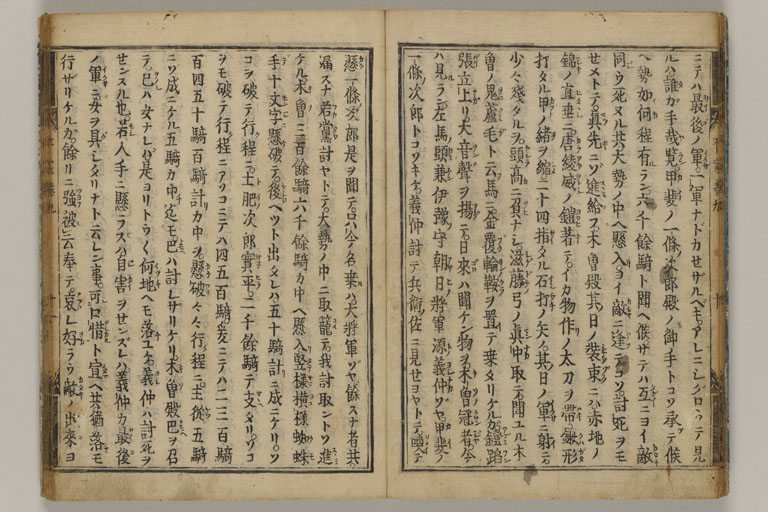 ニテハ最後ノ軍一軍ナドカセザルヘキアレニシグロウテ見
ルハ誰カ手哉覧甲斐ノ一條次郎殿ノ御手トコソ承テ候
ヘ勢如何程有ラン六千餘騎ト聞ヘ候サテハ互ニヨイ敵
同ウ死ヌルハ共大勢ノ中ヘ懸入ヨイ敵ニ逢テコソ討死ヲモ
セメトテ真先ニゾ進給フ木曽殿其日ノ装束ニハ赤地ノ
錦ノ直垂ニ唐綾威ノ鎧著テイカ物作ノ太刀ヲ帯鍬形
打タル甲ノ緒ヲ縮二十四指タル石打ノ矢ノ其日ノ軍ニ射テ
少々残タルヲ頭高ニ負ナシ滋藤弓ノ真中取テ聞ユル木
曽ノ鬼蘆毛ト云馬ニ金覆輪鞍ヲ置テ乗タリケルカ鐙蹈
張立上リ大音聲ヲ揚テ日来ハ聞ケン物ヲ木曽冠者今
ハ見ラン左馬頭兼伊豫守朝日将軍源義仲ゾヤ甲斐ノ
一條次郎トコソキケ義仲討テ兵衛佐ニ見セヨヤトテ喚テ
懸一條次郎是ヲ聞テ只今名乗ハ大将軍ゾヤ餘スナ者共
漏スナ若黨討ヤトテ大勢ノ中ニ取籠テ我討取ントゾ進
ケル木曽三百餘騎六千餘騎カ中ヘ懸入竪様横様蜘蛛
手十文字懸破テ後ヘツット出タレハ五十騎計ニ成ニケリソ
コヲ破テ行程ニ土肥次郎實平二千餘騎テ支タリソコ
ヲモ破テ行程ニアソコニテハ四五百騎爰ニテハ二三百騎
百四五十騎百騎計カ中ヲ懸破々々行程ニ主従五騎
ニソ成ニケル五騎カ中迄モ巴ハ討レサリケリ木曽殿巴ヲ召
テ己ハ女ナレバ是ヨリトウ〳〵何地ヘモ落ユケ義仲ハ討死ヲ
センスル也若人手ニ懸ラスハ自害ヲセンズレハ義仲カ最後
ノ軍ニ女ヲ具シタリナト云レン事可惜ト宣ヘ共猶落モ
行ザリケルカ餘リニ強被云奉テ哀レ好ラウ敵ノ出來ヨ